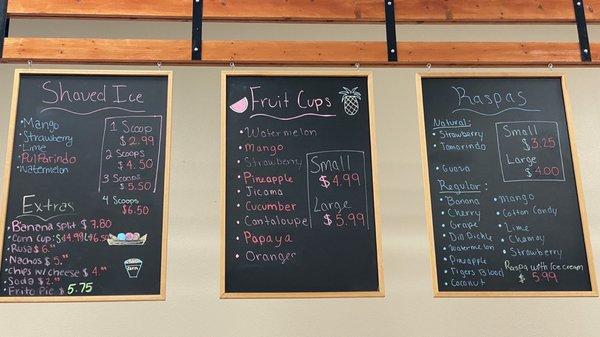 Shaved Ice
•Mango
•Strawberry
•Lime
•Pulparindo
•Watermelon
1 Scoop
$2.99
2 Scoops
$4.50
3 Scoops
$5.50
4 Scoops
$6.50
Extras
•Banana split $7.80
•Corn Cup:
•Nachos $5.
•Chips w/ cheese $4.
•Soda $2.
•Frito Pie $5.75
Fruit Cups
•Watermelon
•Mango
•Strawberry
•Pineapple
•Jicama
•Cucumber
•Cantaloupe
•Papaya
•Oranges
Small
$4.99
Large
$5.99
Raspas
Natural:
•Strawberry
•Tamarindo
•Guava
Small
$3.25
Large
$4.00
Regular:
•Banana
•Cherry
•Grape
•Dill Pickle
•Watermelon
•Pineapple
•Tigers Blood
•Coconut
•Mango
•Cotton Candy
•Lime
•Chamoy
•Strawberry
Raspa with Ice cream
$5.99